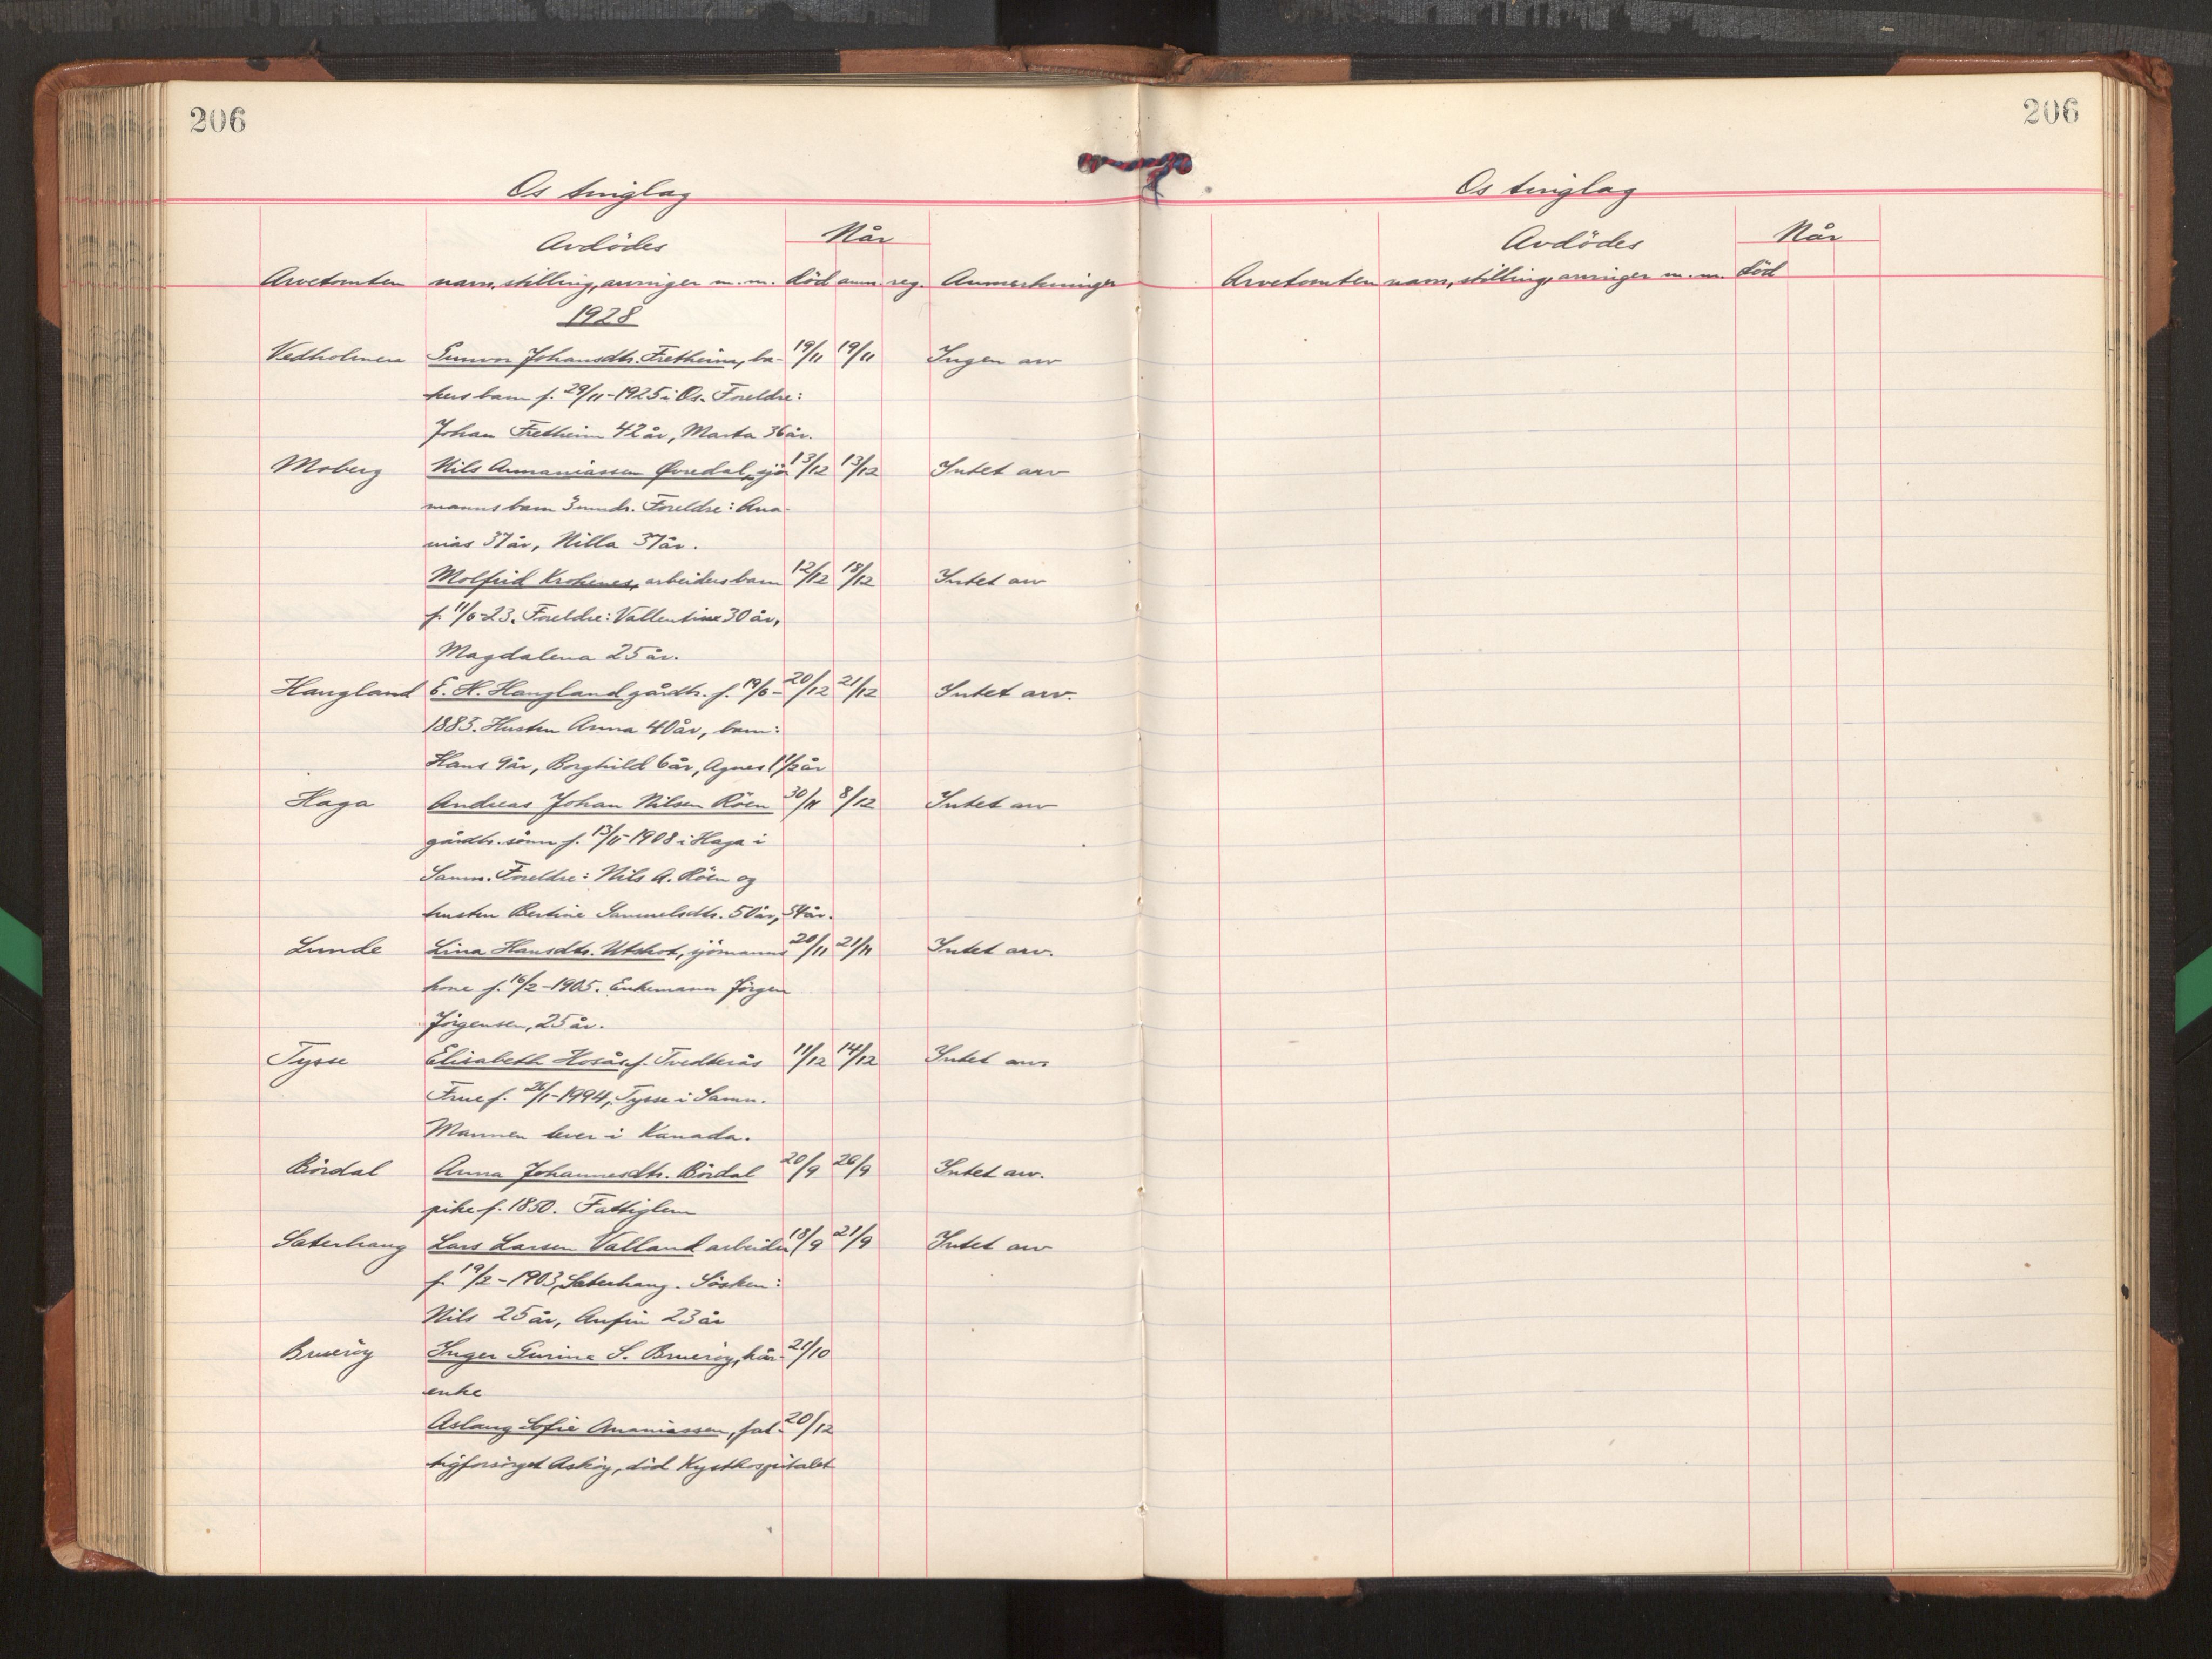 206
206
Os tinglag
Os tinglag
Avdödes
Når
Arvetomten navn, stilling, arvinger m.m. död anm. reg. Anmerkninger
1928
Vedholmen Gunvor Johansdtr. Fretheim, ba- 19/11 19/11 Ingen arv
kers barn f. 29/11-1925 i Os. Foreldre:
Johan Fretheim 42 år, Marta 36 år.
Moberg Nils Annaniassen Øvredal, sjö 13/12 13/12 Intet arv
manns barn 3 mndr. Foreldre: Ana-
nias 37 år, Nilla 37 år.
Molfrid Krokenes, arbeiders barn 12/12 18/12 Intet arv
f. 11/6-23. Foreldre: Vallentine 30 år,
Magdalena 25 år.
Haugland E. H. Haugland gårdbr. f. 19/6- 20/12 21/12 Intet arv.
1883. Hustru Anna 40 år, barn:
Hans 9 år, Borghild 6 år, Agnes 1 1/2 år
Haga Andreas Johan Nilsen Röen 30/11 8/12 Intet arv
gårdbr. sönn f. 13/11-1908 i Haga i
Samn. Foreldre: Nils A. Röen og
hustru Bertine Samuelsdtr. 50 år, 54 år.
Lunde Lina Hansdtr. Utskot, sjömanns 20/11 21/11 Intet arv.
kone f. 16/2-1905. Enkemann Jörgen
Jörgensen, 25 år.
Tysse Elisabeth Hosås f. Tvedterås 11/12 14/12 Intet arv
Frue f. 26/1-1994, Tysse i Samn.
Mannen lever i Kanada.
Bördal Anna Johannesdtr. Bördal 20/9 26/9 Intet arv.
pike f. 1850. Fattiglem
Saterhaug Lars Larsen Valland arbeider 18/9 21/9 Intet arv
f. 19/2-1903, Saterhaug. Sösken:
Nils 25 år, Anfin 23 år
Brueröy Inger Gurine S. Brueröy, kår- 21/10
enke
Aslaug Sofie Ananiassen, fat- 20/12
tigforsörget Asköy, död Kysthospitalet
Avdödes
Når
Arvetomten navn, stilling, arvinger m.m. död